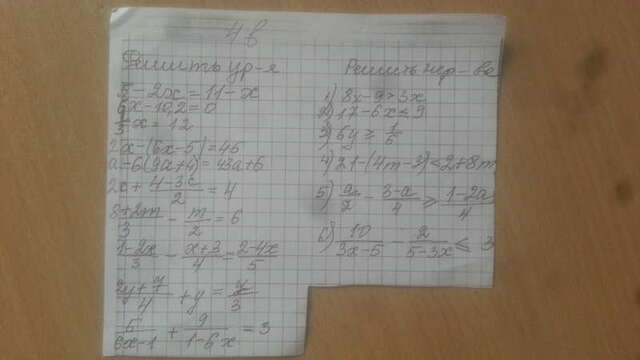 4 в
Решить ур-я
5 - 2x = 11 - x
6x - 10,2 = 0
1/3 x = 12
2x - (6x - 5) = 45
a - 6(9a + 4) = 43a + 6
2x + (4 - 3x)/2 = 4
(8 + 2m)/3 - m/2 = 6
(1 - 2x)/3 - (x + 3)/4 = (2 - 4x)/5
(2y + 7)/4 + y = y/3
5/(6x - 1) + 9/(1 - 6x) = 3
Решить нер-ва
1) 8x - 9 > 3x
2) 17 - 6x ≤ 9
3) 6y ≥ 1/6
4) 21 - (4m - 3) < 2 + 8m
5) a/7 - (3 - a)/4 ≥ (1 - 2a)/4
6) 10/(3x - 5) - 2/(5 - 3x) ≤ 3